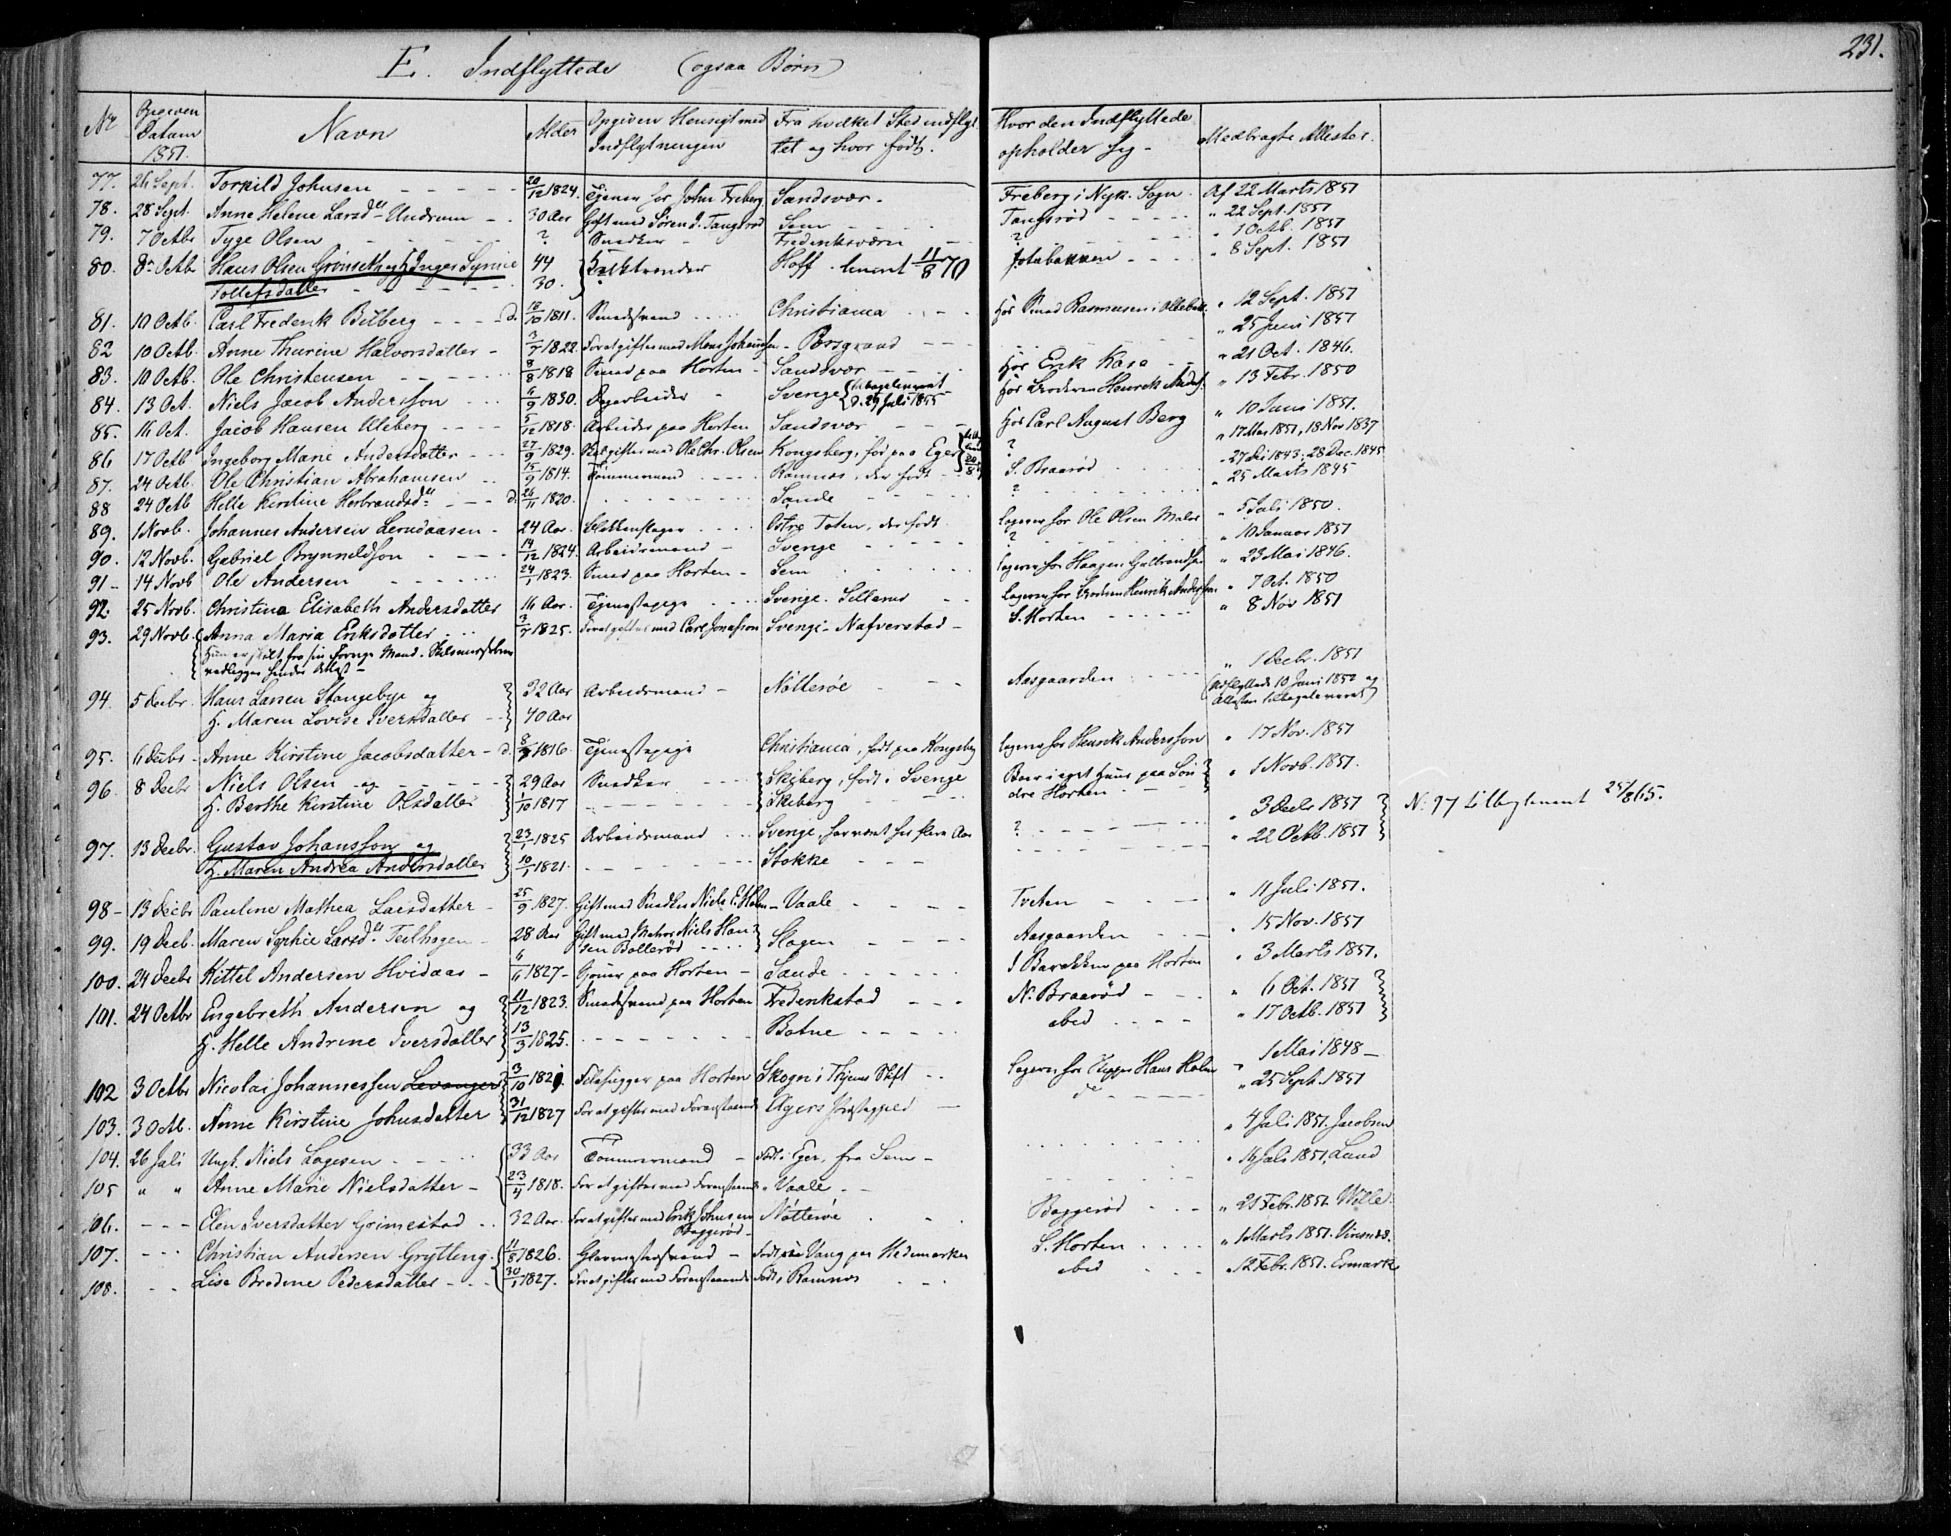 231.
E. Indflyttede (ogsaa Børn)
Nr Opgiven Datum 1851. Navn Alder Opgiven Hensigt med Indflytningen Fra hvilket Sted indflyttet og hvor født. Hvor den Indflyttede opholder sig Medbragte Attester.
77. 26 Sept. Torkild Johnsen 20/12 1824. Tjener hos John Freberg Sandsvær Freberg i Nyk. Sogn Af 22 Marts 1851
78. 28 Sept. Anne Helene Larsd. Undrum 30 Aar Gift med Søren J. Tangsrød Sem Tangsrød " 22 Sept. 1851
79. 7 Octbr Tyge Olsen ? Snedker Frederiksværn ? " 1 Octb. 1851
80. 8 Octb Hans Olsen Grönseth og H. Inger Syrine 44 Hoff. 11/8 70 " 8 Sept. 1851
Tollefsdatter 30.
81. 10 Octb. Carl Frederik Bilberg d. 18/10 1811. Smedsvend Christiania Hos Smed Rasmussen " 12 Sept. 1851
82 10 Octb. Anne Thurine Halvorsdatter 3/7 1822. For at giftes med Mons Johansen Porsgrund " 25 Juni 1851
83. 10 Octb. Ole Christensen 9/8 1818 Smed paa Horten Sandsvær Hos Erik Kasa " 21 Oct. 1846.
84. 13 Oct. Niels Jacob Andersson 6/9 1830. Svenge Hos Broderen Henrik Anders. " 13 Febr. 1850
d. 29 Juli 1855
85. 16 Oct. Jacob Hansen Uleberg 5/12 1818. Arbeider paa Horten Sandsvær Hos Carl August Berg " 10 Juni 1851.
86 17 Octb Ingeborg Marie Andersdatter 27/9 1829. Skal giftes med Ole Chr. Olsen Kongsberg, født paa Eger ? " 17 Mai 1851, 18 Nov 1837
87. 24 Octb. Ole Christian Abrahamsen 15/9 1814. Tømmermand Ramnæs, der født S. Braarød " 27 Dec 1843; 28 Dec. 1845
88 24 Octb Helle Kirstine Herbrandsd. d. 26/11 1820. Sande ? " 25 Marts 1845
89. 1 Novb. Johannes Andersen Lerudaasen 24 Aar. Østre Toten, der født Logerer hos Ole Olsen Maler " 5 Juli 1850.
90. 12 Novb. Gabriel Brynnildson 14/12 1824. Arbeidsmand Svenge ? " 10 Januar 1851
91 14 Novb Ole Andersen 24/1 1823. Smed paa Horten Sem Logerer hos Haagen Gulbrandsen " 23 Mai 1846.
92. 25 Novb. Christina Elisabeth Andersdatter 16 Aar. Tjenestepige Svenge. Logerer hos Broderen Henrik Andersson " 7 Oct. 1850
93. 29 Novb. Anna Maria Eriksdatter 3/7 1825. For at giftes med Carl Jonasson Svenge Nafverstad S. Horten " 8 Nov 1851
Hun er skilt fra sin forrige Mand. Skilsmissebrev
vedlægges hendes Attest
94 5 Decbr. Hans Larsen Stangebye og 32 Aar Arbeidsmand Nötteröe Aasgaarden " 1 Decbr. 1851
H. Maren Lovise Iversdatter 40 Aar (Udflyttede 10 Juni 1852 og Attesten tilbageleveret)
95. 6 Decbr Anne Kirstine Jacobsdatter d. 8/9 1816. Tjenestepige Christiania, født paa Kongsberg Logerer hos Henrik Andersson " 17 Nov. 1851
96. 8 Decbr Niels Olsen og 29 Aar Snedker Skiberg, født i Svenge Boer i eget Huus paa Søndre Horten " 1 Novb. 1851.
H. Berthe Kirstine Olsdatter 1/10 1817 Skiberg
97. 13 Decbr. Gustav Johansson og 23/1 1825 Arbeidsmand Svenge, har været her flere Aar ? " 3 Decbr 1851 No. 97 25/8 65.
H. Maren Andrea Andersdatter 10/1 1821. Stokke " 22 Octb. 1851
98 13 Decbr Pauline Mathea Larsdatter 25/9 1827. Gift med Snedker Niels E. Holm Vaale Tveten " 11 Juli 1851.
99. 19 Decb. Maren Sophie Larsd. Teilhagen 28 Aar Gift med Matros Niels Hansen Bollerød Slagen Aasgaarden " 15 Nov. 1851
100. 24 Decbr Kittel Andersen Hvidaas 6/11 1827 paa Horten Sande I Barakken paa Horten " 3 Marts 1851.
101. 24 Octbr Engebreth Andersen og 11/12 1823. Smedsvend paa Horten Frederikstad N. Braarød " 6 Oct. 1851
H. Helle Andrine Iversdatter 13/3 1825. Botne ibid " 17 Octb. 1851
102 3 Octbr Nicolai Johannessen Levanger 3/10 182 Filehugger paa Horten Skogn i Thjems Stift Logerer hos Skipper Hans Holm " 1 Mai 1848
103. 3 Octb. Anne Kirstine Johnsdatter 31/12 1827 For at giftes med Foranstaaende Agers Præstegjeld do " 25 Sept. 1851
104. 26 Juli Ungk. Niels Lagesen 33 Aar Tømmermand født i Eger, fra Sem " 4 Juli 1851. Jacobsen
105 " " Anne Marie Nielsdatter 23/4 1818. For at giftes med Foranst. Vaale " 14 Juli 1851, Lund
106. Elen Iversdatter Grimestad 32 Aar. For at giftes med Erik Johnsen Baggerød Nötteröe Baggerød " 21 Febr. 1851. Wille
107. Christian Andersen Grytting. 11/8 1826. Glarmestersvend født paa Vang paa Hedemarken S. Horten " 1 Marts 1851.
108. Lise Bredine Pedersdatter 30/1 1827. For at giftes med Foranstaaende født i Ramnæs ibid " 12 Febr. 1851. Esmark